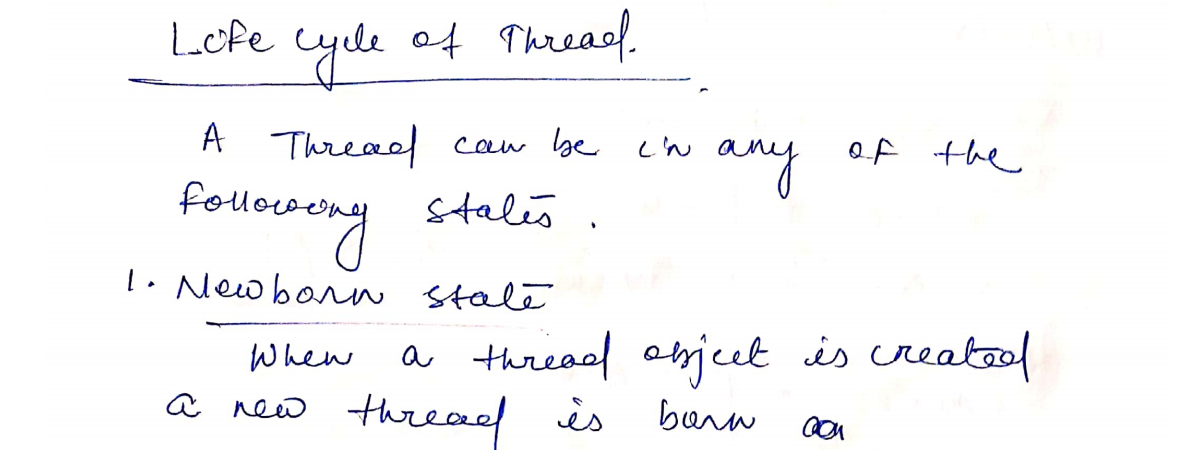 Life cycle of Thread.
A Thread can be in any of the
following states.
1. Newborn state
When a thread object is created
a new thread is born